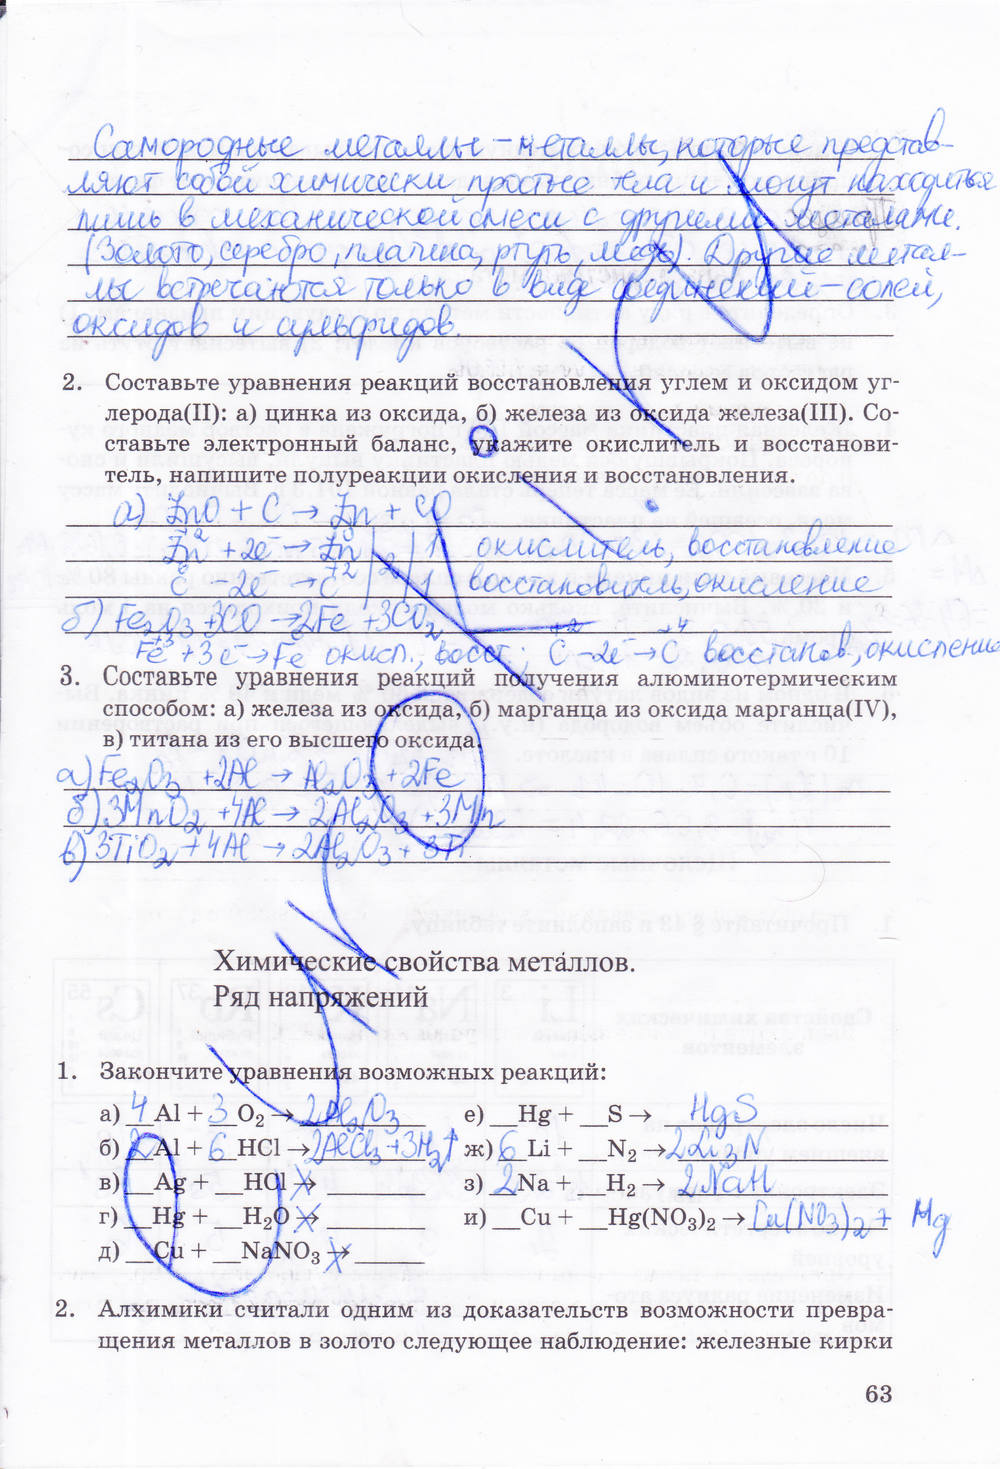 Самородные металлы – металлы, которые представ-
ляют собой химически простые тела и могут находиться
лишь в механической смеси с другими металлами.
(Золото, серебро, платина, ртуть, медь). Другие метал-
лы встречаются только в виде соединений – солей,
оксидов и сульфидов.
2. Составьте уравнения реакций восстановления углем и оксидом уг-
лерода(II): а) цинка из оксида, б) железа из оксида железа(III). Со-
ставьте электронный баланс, укажите окислитель и восстанови-
тель, напишите полуреакции окисления и восстановления.
а) ZnO + C → Zn + CO
Zn⁺² + 2e⁻ → Zn⁰ | 2 | 1 окислитель, восстановление
C⁰ - 2e⁻ → C⁺² восстановитель, окисление
б) Fe₂O₃ + 3CO → 2Fe + 3CO₂
Fe⁺³ + 3e⁻ → Fe⁰ окисл., восст.; C⁺² - 2e⁻ → C⁺⁴ восстанов., окисление
3. Составьте уравнения реакций получения алюминотермическим
способом: а) железа из оксида, б) марганца из оксида марганца(IV),
в) титана из его высшего оксида.
а) Fe₂O₃ + 2Al → Al₂O₃ + 2Fe
б) 3MnO₂ + 4Al → 2Al₂O₃ + 3Mn
в) 3TiO₂ + 4Al → 2Al₂O₃ + 3Ti
Химические свойства метáллов.
Ряд напряжений
1. Закончите уравнения возможных реакций:
а) 4 Al + 3 O₂ → 2Al₂O₃ е) __Hg + __S → HgS
б) 2 Al + 6 HCl → 2AlCl₃ + 3H₂↑ ж) 6 Li + __N₂ → 2Li₃N
в) __Ag + __HCl → ______ з) 2 Na + __H₂ → 2NaH
г) __Hg + __H₂O → ______ и) __Cu + __Hg(NO₃)₂ → Cu(NO₃)₂ + Hg
д) __Cu + __NaNO₃ → ______
2. Алхимики считали одним из доказательств возможности превра-
щения металлов в золото следующее наблюдение: железные кирки
63